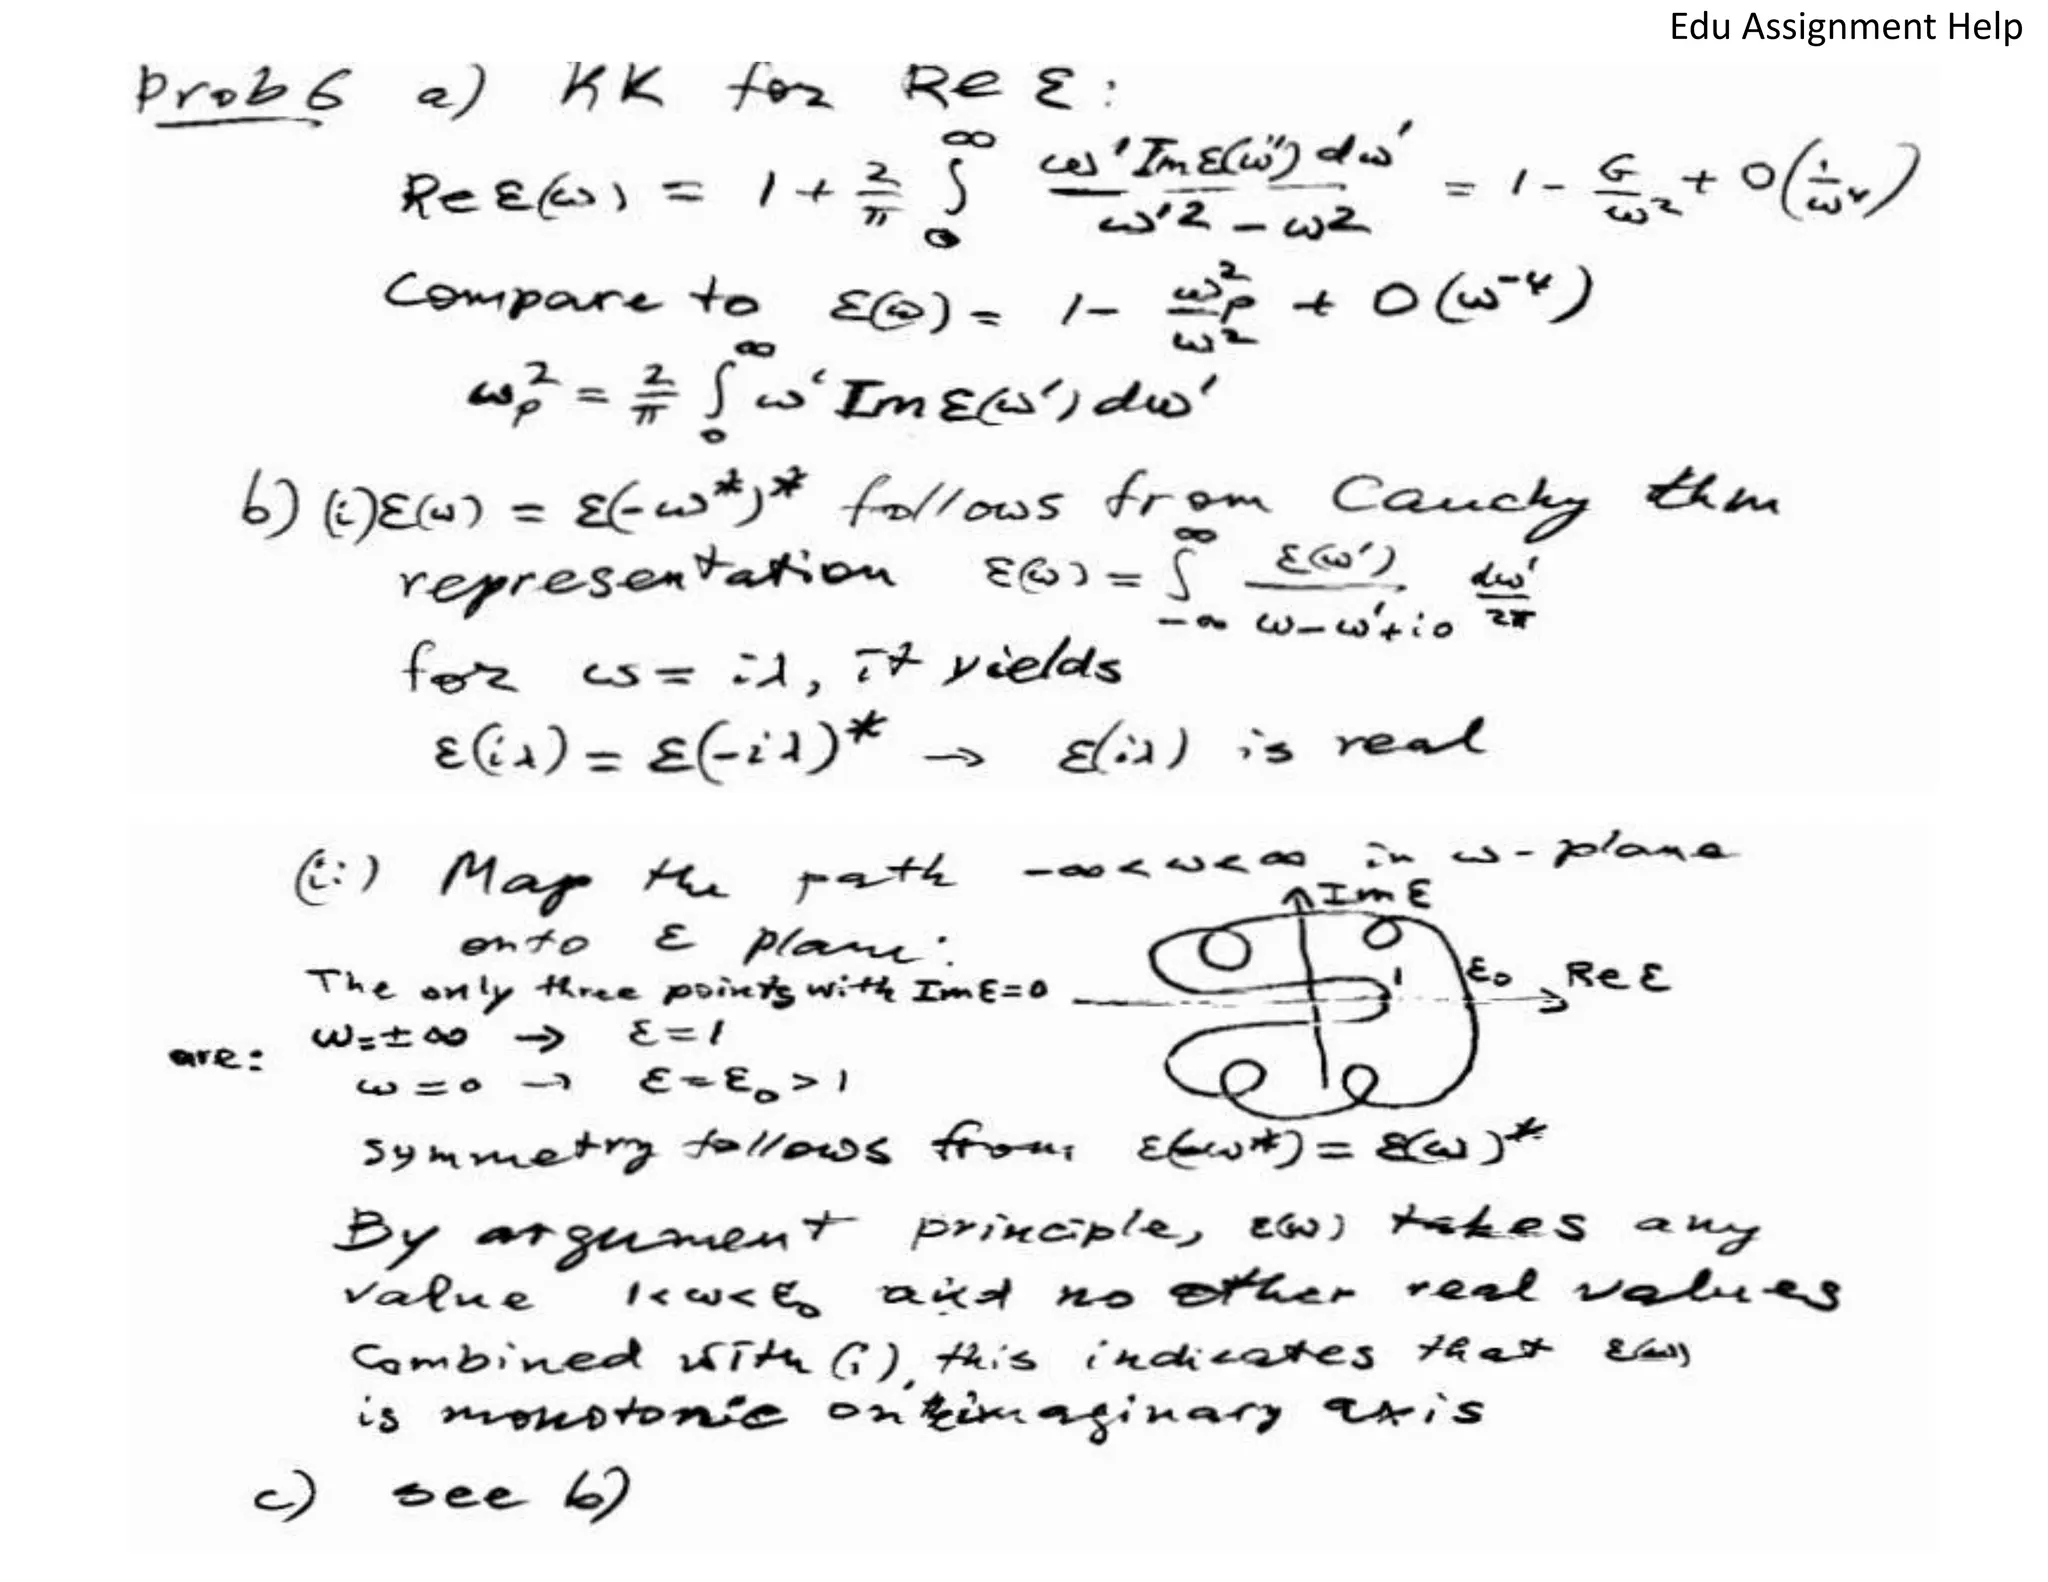 Edu Assignment Help
Prob 6 a) KK for Re ε:
Re ε(ω) = 1 + 2/π ∫₀^∞ ω' Im ε(ω'') dω' / ω'² - ω² = 1 - G/ω² + O(1/ω⁴)
Compare to ε(ω) = 1 - ω_p²/ω² + O(ω⁻⁴)
ω_p² = 2/π ∫₀^∞ ω' Im ε(ω') dω'
b) (i) ε(ω) = ε(-ω*)* follows from Cauchy thm
representation ε(ω) = ∫_{-∞}^∞ ε(ω') / ω-ω'+i0 dω'/2π
for ω = iλ, it yields
ε(iλ) = ε(-iλ)* → ε(iλ) is real
(ii) Map the path -∞<ω<∞ in ω-plane
onto ε plane:
Im ε
1
ε₀
Re ε
The only three points with Im ε=0
are: ω=±∞ → ε=1
ω=0 → ε=ε₀>1
symmetry follows from ε(-ω*) = ε(ω)*
By argument principle, ε(ω) takes any
value 1<ω<ε₀ and no other real values
Combined with (i), this indicates that ε(ω)
is monotonic on imaginary axis
c) see b)